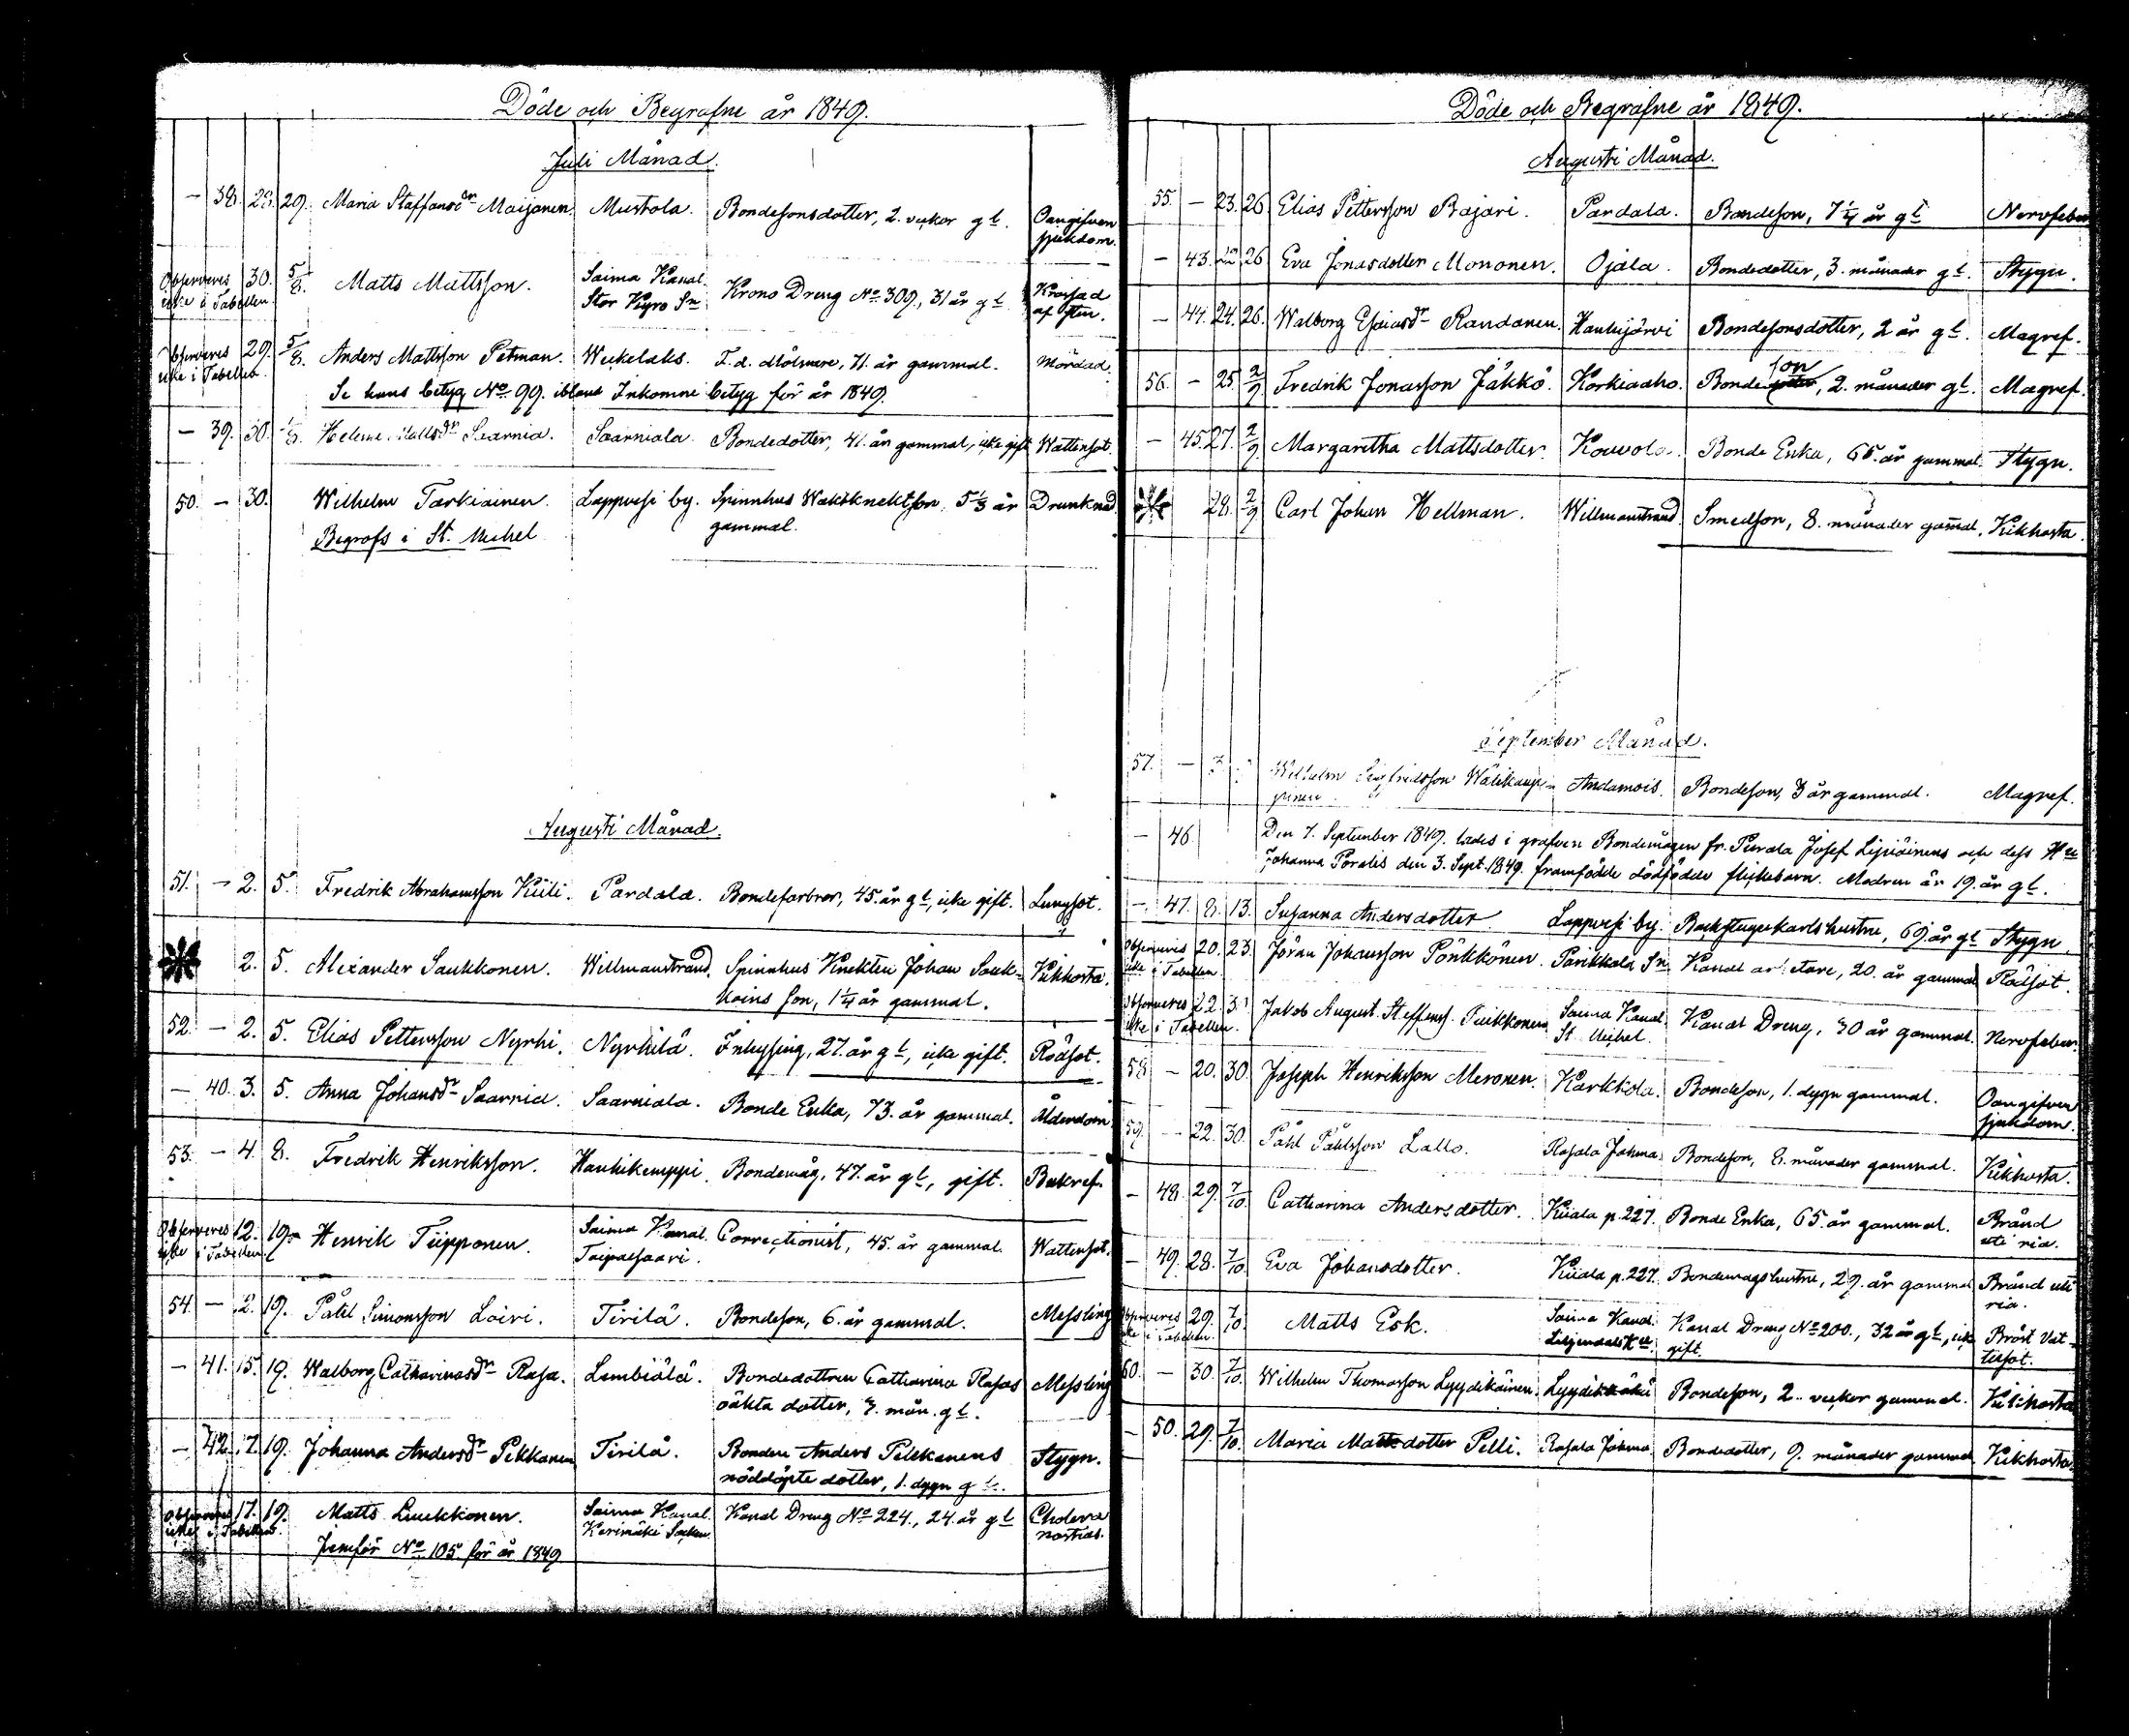 Döde och Begrafne år 1849.
Juli Månad.
— 38. 28. 29. Maria Staffansdr Maijanen. Mustola. Bondesonsdotter, 2. veckor gl. Oangifven
sjukdom.
Observeres 30. 5/8. Matts Mattsson. Saima Kanal. Krono Dreng No 309., 31 år gl. Krossad
icke i Tabellen Stor Kyro Sn af sten.
Observeres 29. 5/8. Anders Mattsson Petman. Weckelaks. F. d. Mölnare, 71. år gammal. Mördad.
icke i Tabellen
Se hans betyg No 99. ibland Inkomne betyg för år 1849.
— 39. 30. Helena Mattsdr Saarnia. Saarniala. Bondedotter, 41. år gammal, icke gift Wattensot.
50. — 30. Wilhelm Tarkiainen. Lappvesi by. Spinnhus Waktknektson, 5 1/3 år Drunknad
gammal.
Begrofs i St. Michel
Augusti Månad.
51. — 2. 5. Fredrik Abrahamsson Kiili. Pardala. Bondefarbror, 45. år gl, icke gift. Lungsot.
2. 5. Alexander Saukkonen. Willmanstrand. Spinnhus Knekten Johan Sauk- Kikhosta.
koins son, 1 1/4 år gammal.
52. — 2. 5. Elias Pettersson Nyrhi. Nyrhilä. Inhysing, 27. år gl, icke gift. Rödsot.
— 40. 3. 5. Anna Johansdr Saarnia. Saarniala. Bonde Enka, 73. år gammal. Ålderdom
53. — 4. 8. Fredrik Henriksson. Hauhikemppi. Bondemåg, 47. år gl, gift. Bukref.
Observeres 12. 19. Henrik Tiipponen. Saima Kanal. Correctionist, 45. år gammal. Wattensot.
icke i Tabellen Taipalsaari.
54. — 12. 19. Påhl Simonsson Loiri. Tirilä. Bondeson, 6. år gammal. Messling
— 41. 15. 19. Walborg Catharinasdr Rasa. Lembiälä. Bondedottren Catharina Rasas Messling
oäkta dotter, 7. mån. gl.
— 42. 17. 19. Johanna Andersdr Pekkanen Tirilä. Bonden Anders Pekkanens Stygn.
nöddöpte dotter, 1. dygn gl.
Observeres 17. 19. Matts Luukkonen. Saima Kanal. Kanal Dreng No 224., 24. år gl Cholera
icke i Tabellen. Kerimäki Socken. nostras.
Jemför No 105 för år 1849
Döde och Begrafne år 1849.
Augusti Månad.
55. — 23. 26 Elias Pettersson Bajari. Pardala. Bondeson, 7 1/4 år gl Nervfeber
— 43. 26 Eva Jonasdotter Mononen. Ojala. Bondedotter, 3. månader gl. Stygn.
— 44. 24. 26. Walborg Esaiasdr Randanen. Hanhijärvi Bondesonsdotter, 2 år gl. Magref.
son
56. — 25. 2/9. Fredrik Jonasson Jäkkö. Korkiaaho. Bonde dotter, 2. månader gl. Magref.
— 45. 27. 2/9 Margaretha Mattsdotter. Kouvola. Bonde Enka, 65. år gammal. Stygn.
28. 2/9 Carl Johan Hellman. Willmanstrand. Smedson, 8. månader gammal. Kikhosta.
September Månad.
57. — Wilhelm Sigfridsson Wälikaup- Andamois. Bondeson, 3 år gammal. Magref.
pinen.
— 46 Den 7. September 1849. lades i grafven Bondemågen fr. Purala Josef Lipiäinens och dess Hu
Johanna Poralis den 3. Sept. 1849. framfödde dödfödde flickebarn. Modren är 19. år gl.
— 47. 8. 13. Susanna Andersdotter. Lappvesi by. Backstugukarls hustru, 69. år gl Stygn.
Observeres 20. 23. Jöran Johansson Pönkkönen. Parikkala Sn Kanal arbetare, 20. år gammal Rödsot.
icke i Tabellen
Observeres 22. Jakob August. Steffenss. Tuikkonen. Saima Kanal. Kanal Dreng, 30 år gammal. Nervfeber.
icke i Tabellen. St. Michel.
58 — 20. 30. Joseph Henriksson Meronen. Karkkola. Bondeson, 1. dygn gammal. Oangifven
sjukdom.
59. — 22. 30. Påhl Påhlsson Lallo. Rasala Johma. Bondeson, 8. månader gammal. Kikhosta.
— 48. 29. 7/10. Catharina Andersdotter. Kiiala p. 227. Bonde Enka, 65. år gammal. Bränd
uti ria.
— 49. 28. 7/10. Eva Johansdotter. Kiiala p. 227. Bondemågs hustru, 29. år gammal Bränd uti
ria.
Observeres 29. 7/10. Matts Esk. Saima Kanal. Kanal Dreng No 200., 32 år gl, icke Bröst Vat-
icke i Tabellen Liljendals gift. tusot.
60. — 30. 7/10. Wilhelm Thomasson Lyydikäinen. Lyydikälä Bondeson, 2. veckor gammal. Kikhosta
— 50. 29. 7/10. Maria Mattsdotter Pelli. Rasala Johma. Bondedotter, 9. månader gammal Kikhosta.